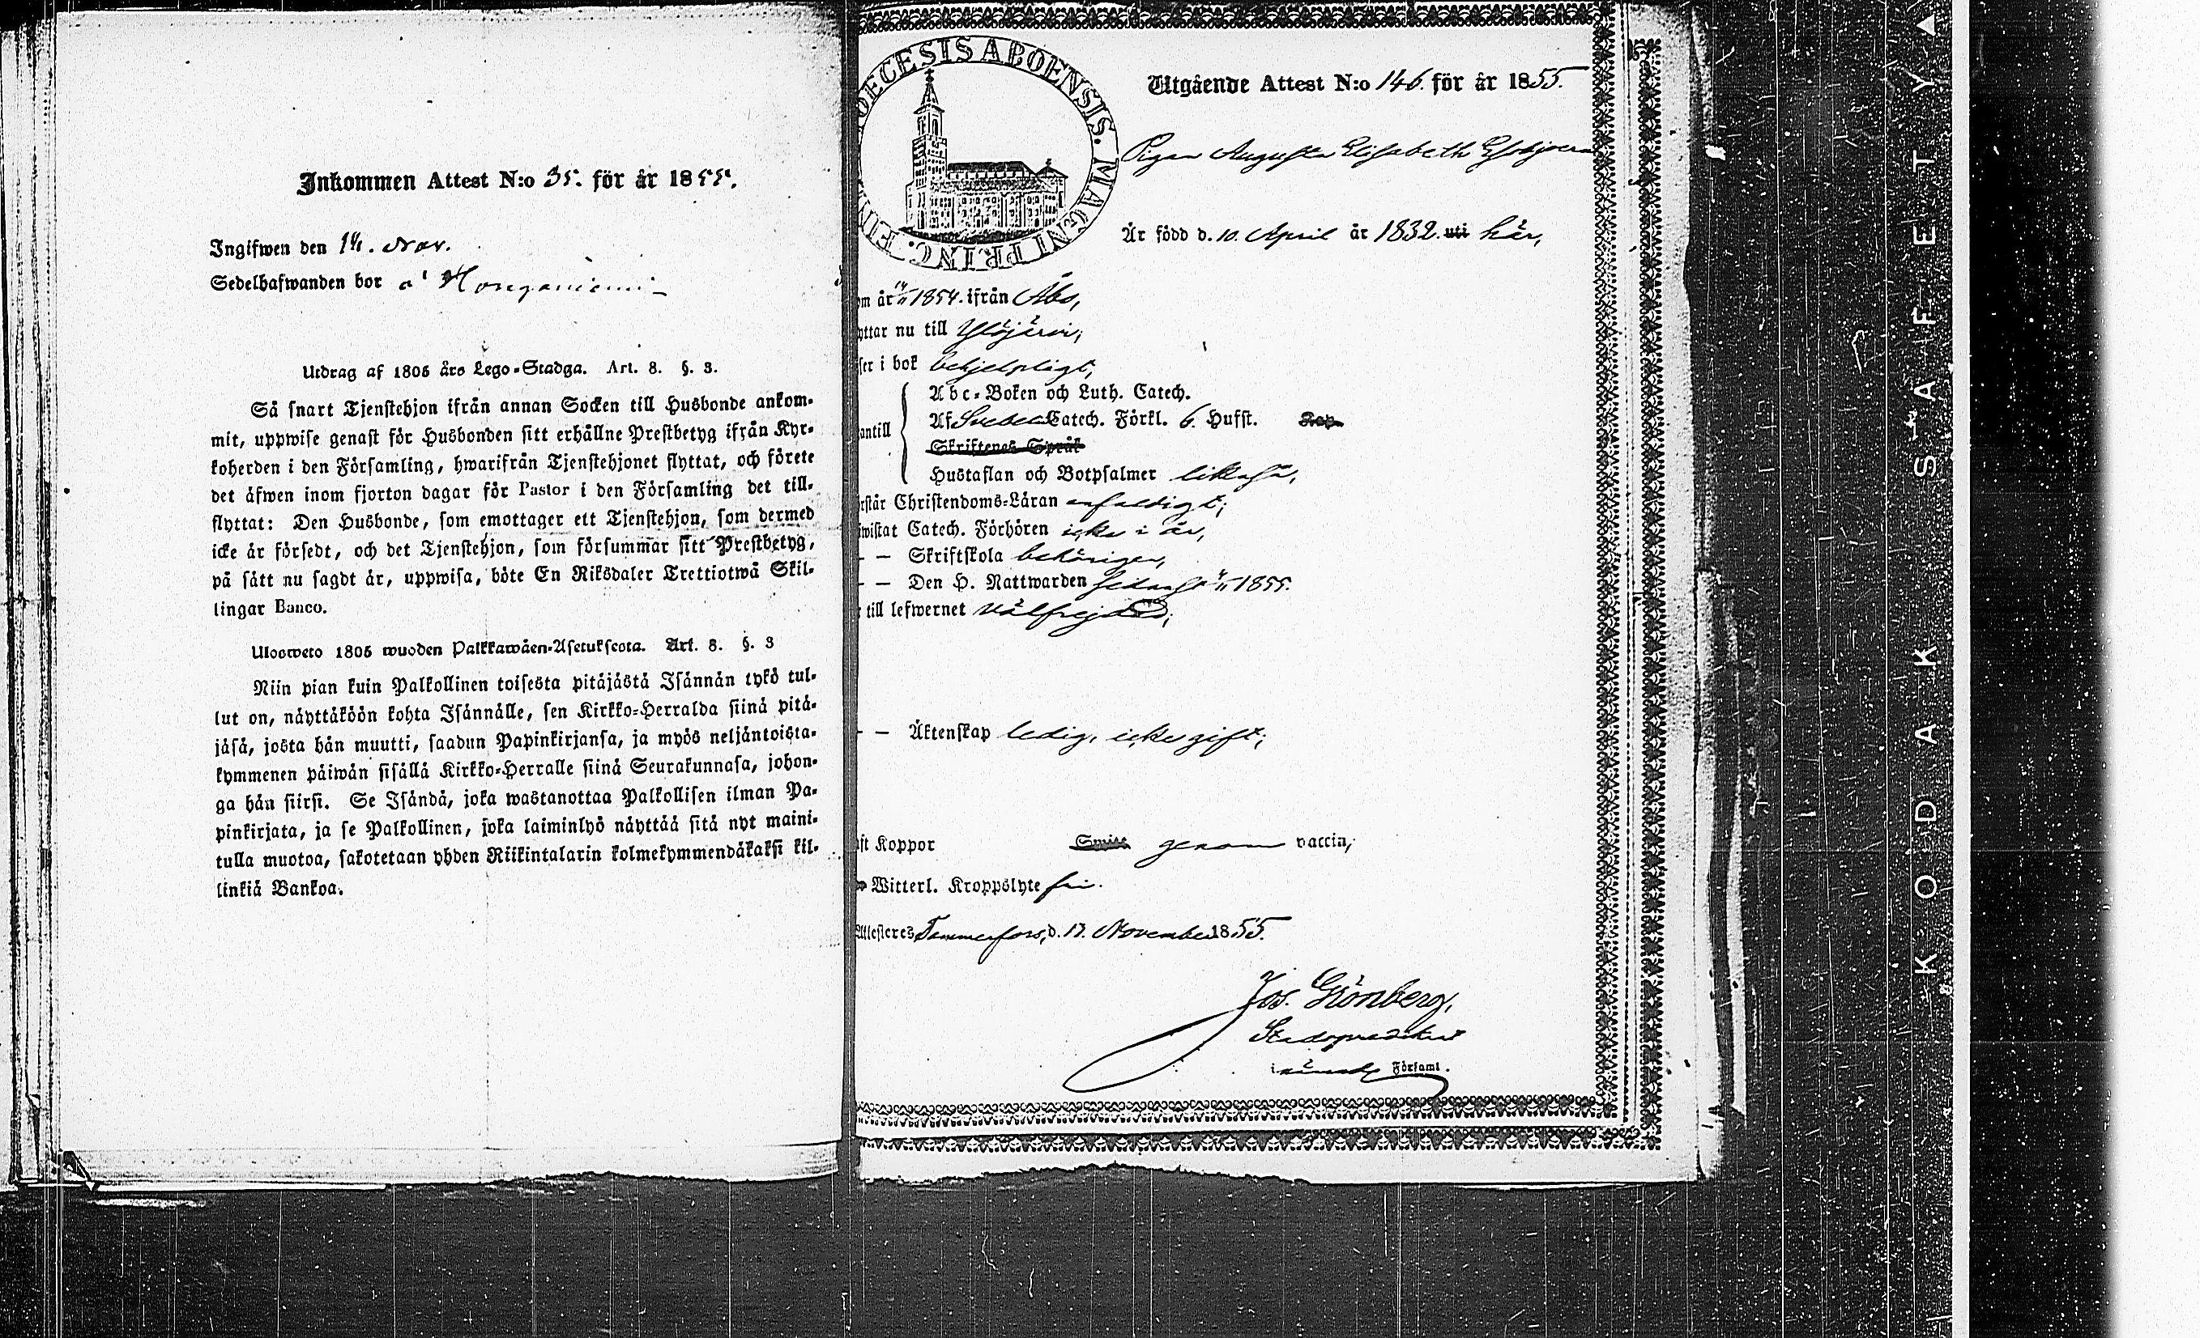 Inkommen Attest N:o 35. för år 1855.
Ingifwen den 14. Nov.
Sedelhafwanden bor å Honganiemi
Utdrag af 1805 års Lego-Stadga. Art. 8. §. 3.
Så snart Tjenstehjon ifrån annan Socken till Husbonde ankom-
mit, uppwise genast för Husbonden sitt erhållne Prestbetyg ifrån Kyr-
koherden i den Församling, hwarifrån Tjenstehjonet flyttat, och förete
det äfwen inom fjorton dagar för Pastor i den Församling det till-
flyttat: Den Husbonde, som emottager ett Tjenstehjon, som dermed
icke är försedt, och det Tjenstehjon, som försummar sitt Prestbetyg,
på sätt nu sagdt är, uppwisa, böte En Riksdaler Trettiotwå Skil-
lingar Banco.
Ulosweto 1805 wuoden Palkkawäen-Asetuksesta. Art. 8. §. 3
Niin pian kuin Palkollinen toisesta pitäjästä Isännän tykö tul-
lut on, näyttäköön kohta Isännälle, sen Kirkko-Herralda siinä pitä-
jäsä, josta hän muutti, saadun Papinkirjansa, ja myös neljäntoista-
kymmenen päiwän sisällä Kirkko-Herralle siinä Seurakunnasa, johon-
ga hän siirsi. Se Isändä, joka wastanottaa Palkollisen ilman Pa-
pinkirjata, ja se Palkollinen, joka laiminlyö näyttää sitä nyt maini-
tulla muotoa, sakotetaan yhden Riikintalarin kolmekymmendäkaksi kil-
linkiä Bankoa.
OECESIS ABOENSIS. MAGNI PRINC. FIN
Utgående Attest N:o 146. för år 1855.
Pigan Augusta Elisabeth
År född d. 10. April år 1832. uti här,
om år 1854. ifrån Åbo,
yttar nu till Ylöjärvi,
ser i bok behjelpligt,
Abc-Boken och Luth. Catech.
Af Svebel. Catech. Förkl. 6. Hufst.
antill
Skriftenes Språk
Hustaflan och Botpsalmer likaså,
rstår Christendoms-Läran enfaldigt;
iwistat Catech. Förhören icke i år,
— — Skriftskola behörigen,
— — Den H. Nattwarden sednast 1855.
till lefwernet välfrejdad;
— — Äktenskap ledig, icke gift;
ft Koppor genom vaccin,
Witterl. Kroppslyte fri.
Attesteres Tammerfors, d. 17. November 1855.
Jos. Grönberg,
Stadspredikant
i Församl.
KODAK SAFETY